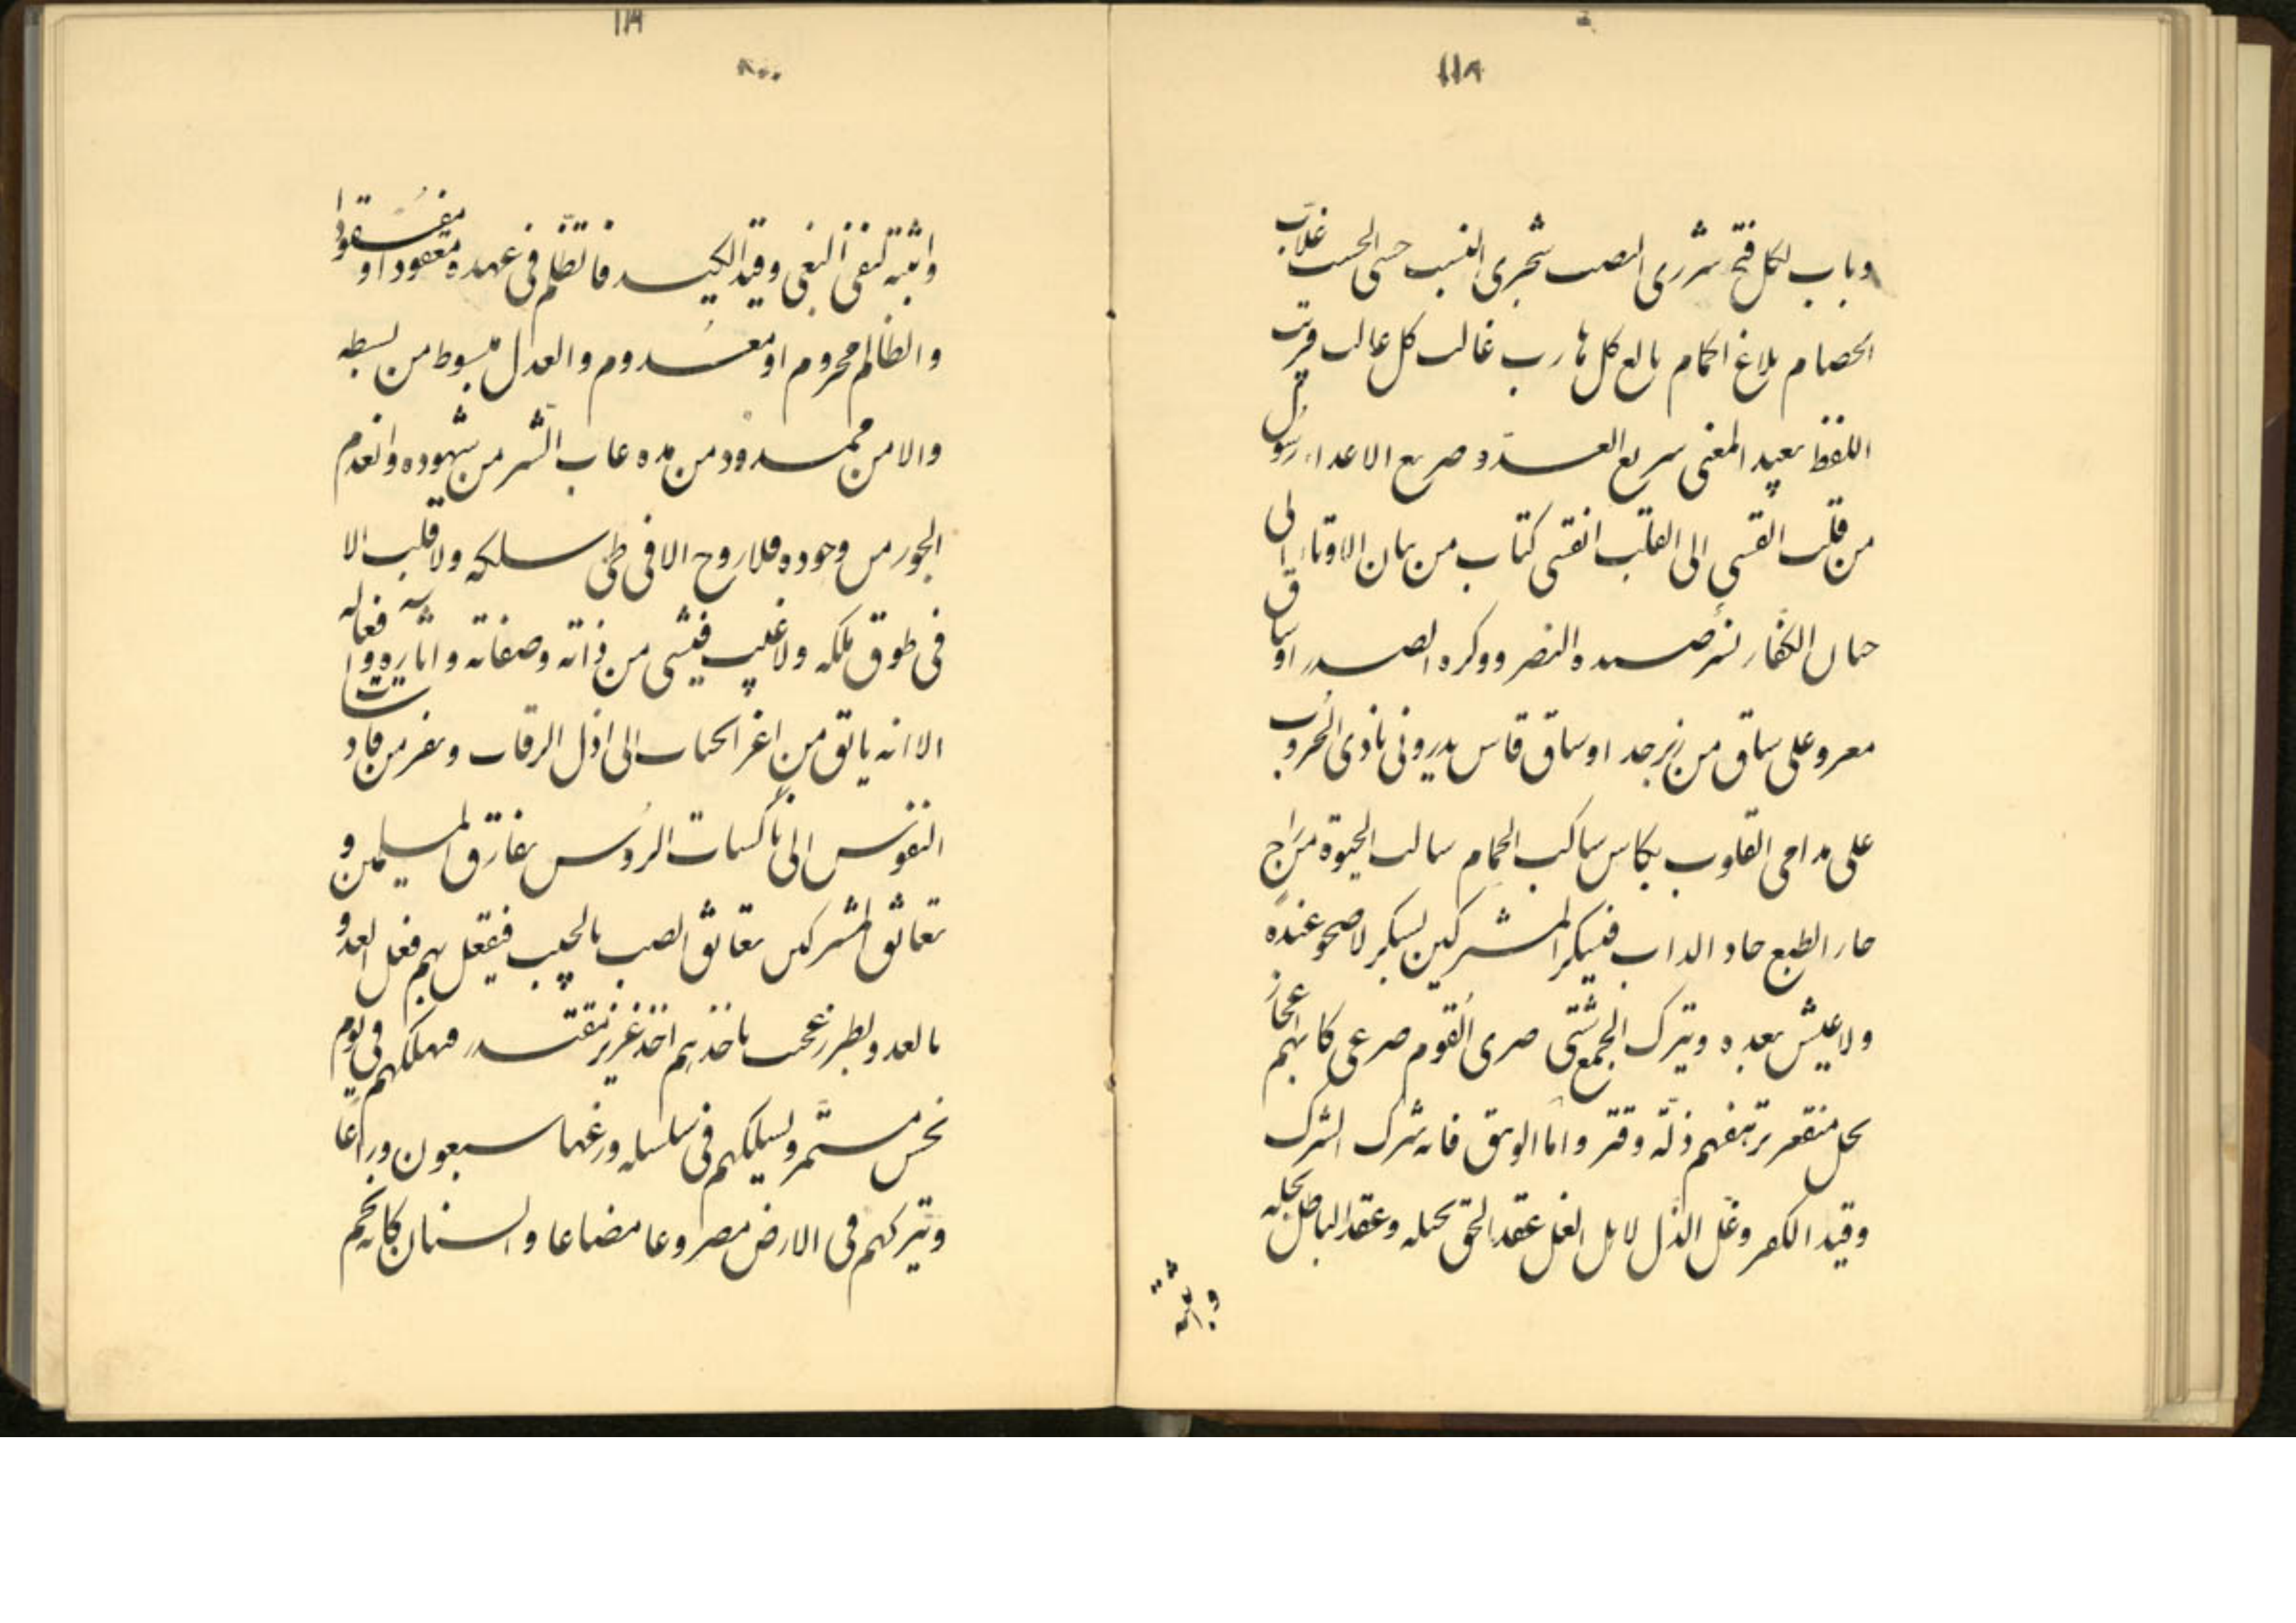 ١١٨
وباب لكل فتح شررى النصب شجرى النسب حسى الحسب غلاب
الخصام بلاغ احكام بالع كل هارب غالب كل عالب قريب
اللفظ بعيد المعنى سريع العدو صريع الاعداء رسول
من قلب القسى الى القلب القسى كتاب من بنان الاوتار الى
جنان الكفار نسر صيده النصر ووكره الصدر او ساق
معرو على ساق من زبرجد او ساق قاس يدرو فى نادى الحروب
على مدامى القلوب بكاس ساكب الحمام سالب الحيوة مزاج
حار الطبع حاد الداب فيسكر المشركين بسكر لا صحو عنده
ولا عيش بعده ويترك الجمع شتى صرى القوم صرعى كانهم اعجاز
نخل منقعر ترهقهم ذلة وقتر واما الوهق فانه شرك الشرك
وقيد الكفر وغل الذل لا بل الغل عقد الحق بحبله وعقد الباطل بحله
واثبته
واثبته لنفى البغى وقيد الكيد فالظلم فى عهده مفقود او معقود
والظالم محروم او معدوم والعدل مبسوط من بسطه
والامن ممدود من مده غاب الشر من شهوده وانعدم
الجور من وجوده فلا روح الا فى طى سلكه ولا قلب الا
فى طوق ملكه ولا عيب فيشى من ذاته وصفاته واثاره وافعاله
الا انه يابق من اعز الجناب الى اذل الرقاب ويفر من قادات
النفوس الى ناكسات الرؤس يفارق المسلمين و
يعانق المشركين تعانق الصب بالحبيب فيفعل بهم فعل العدو
بالعدو بطرز عجب ياخذهم اخذ عزيز مقتدر فيهلكهم فى يوم
نحس مستمر ويسلكهم فى سلسله ذرعها سبعون ذراعا
ويتركهم فى الارض مصروعا مضاعا والسنان كانه نجم